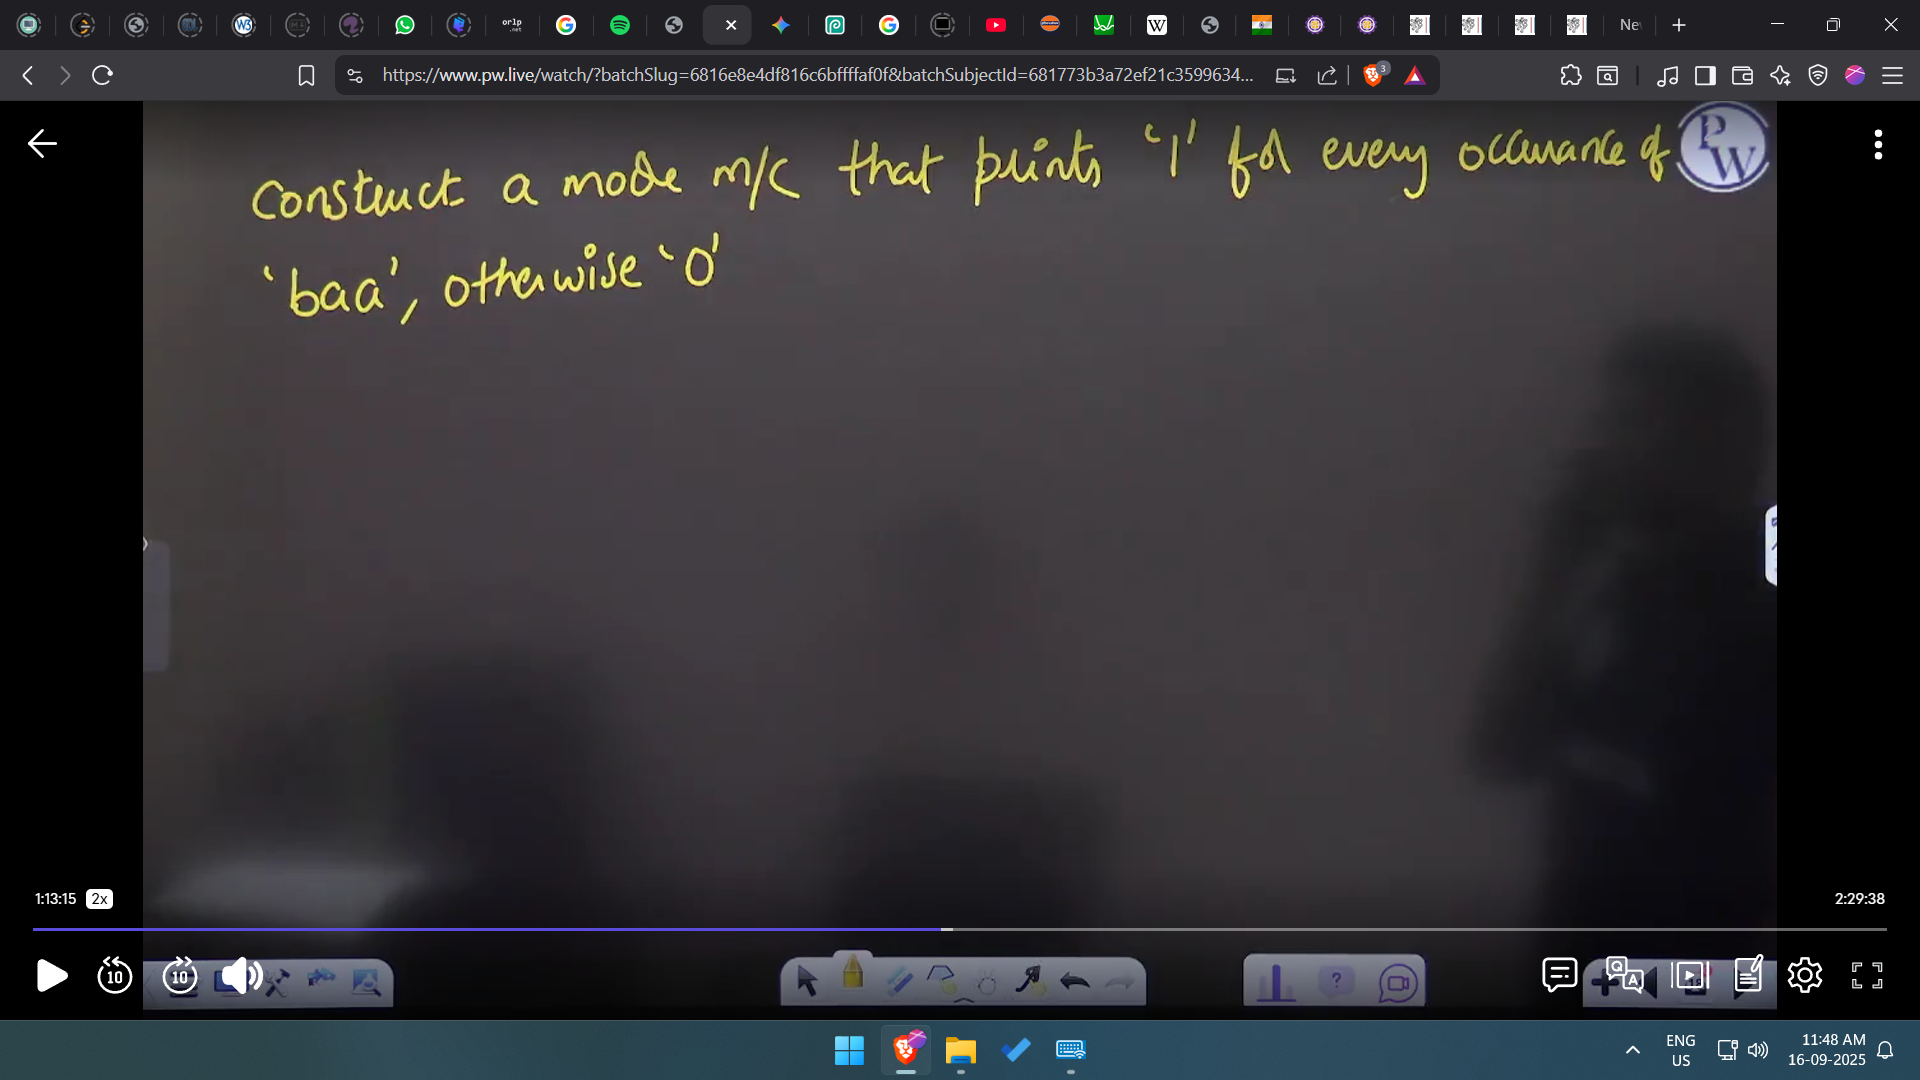 https://www.pw.live/watch/?batchSlug=6816e8e4df816c6bffffaf0f&batchSubjectId=681773b3a72ef21c3599634...
3
Construct a mode m/c that prints '1' for every occurance of
'baa', otherwise '0'
PW
1:13:15 2x
2:29:38
10 10
ENG
US
11:48 AM
16-09-2025